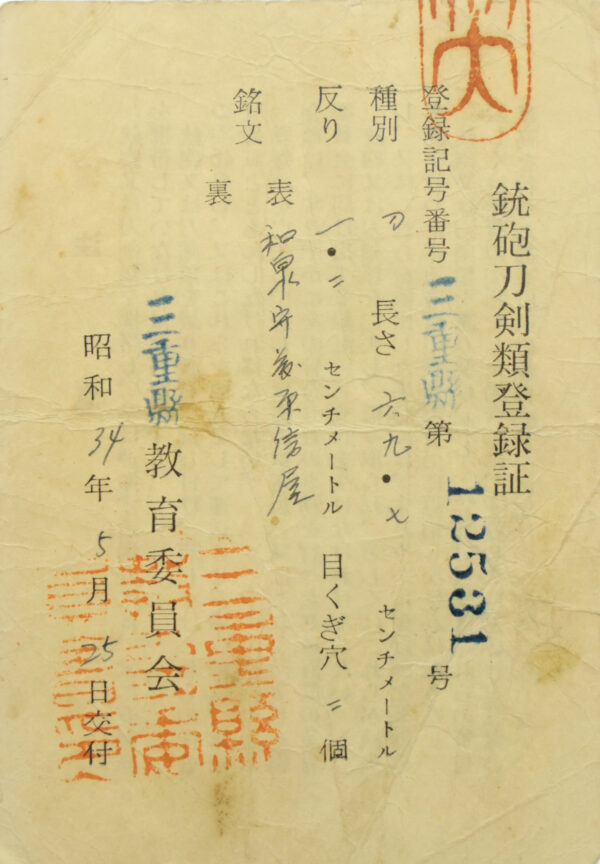 銃砲刀剣類登録証
登録記号番号 三重県 第 12531 号
種別 刀 長さ 六九・七 センチメートル
反り 一・二 センチメートル 目くぎ穴 二 個
銘文 表 和泉守藤原信屋
裏
三重県 教育委員会
昭和 34 年 5 月 25 日交付